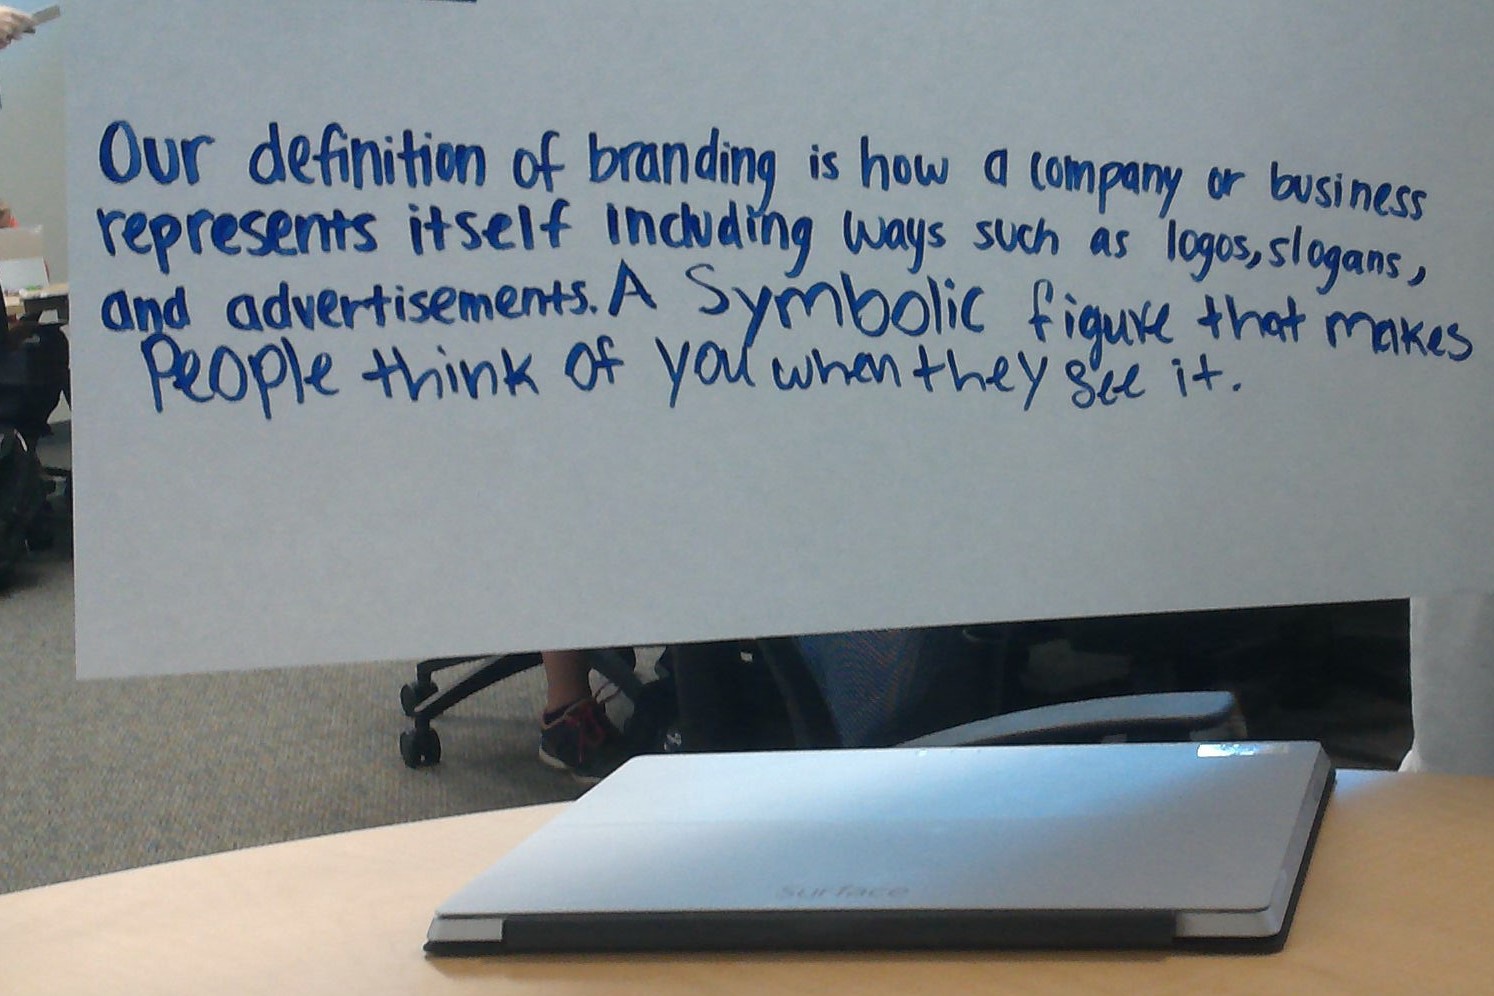 Our definition of branding is how a company or business
represents itself including ways such as logos, slogans,
and advertisements. A Symbolic figure that makes
People think of you when they see it.
Surface